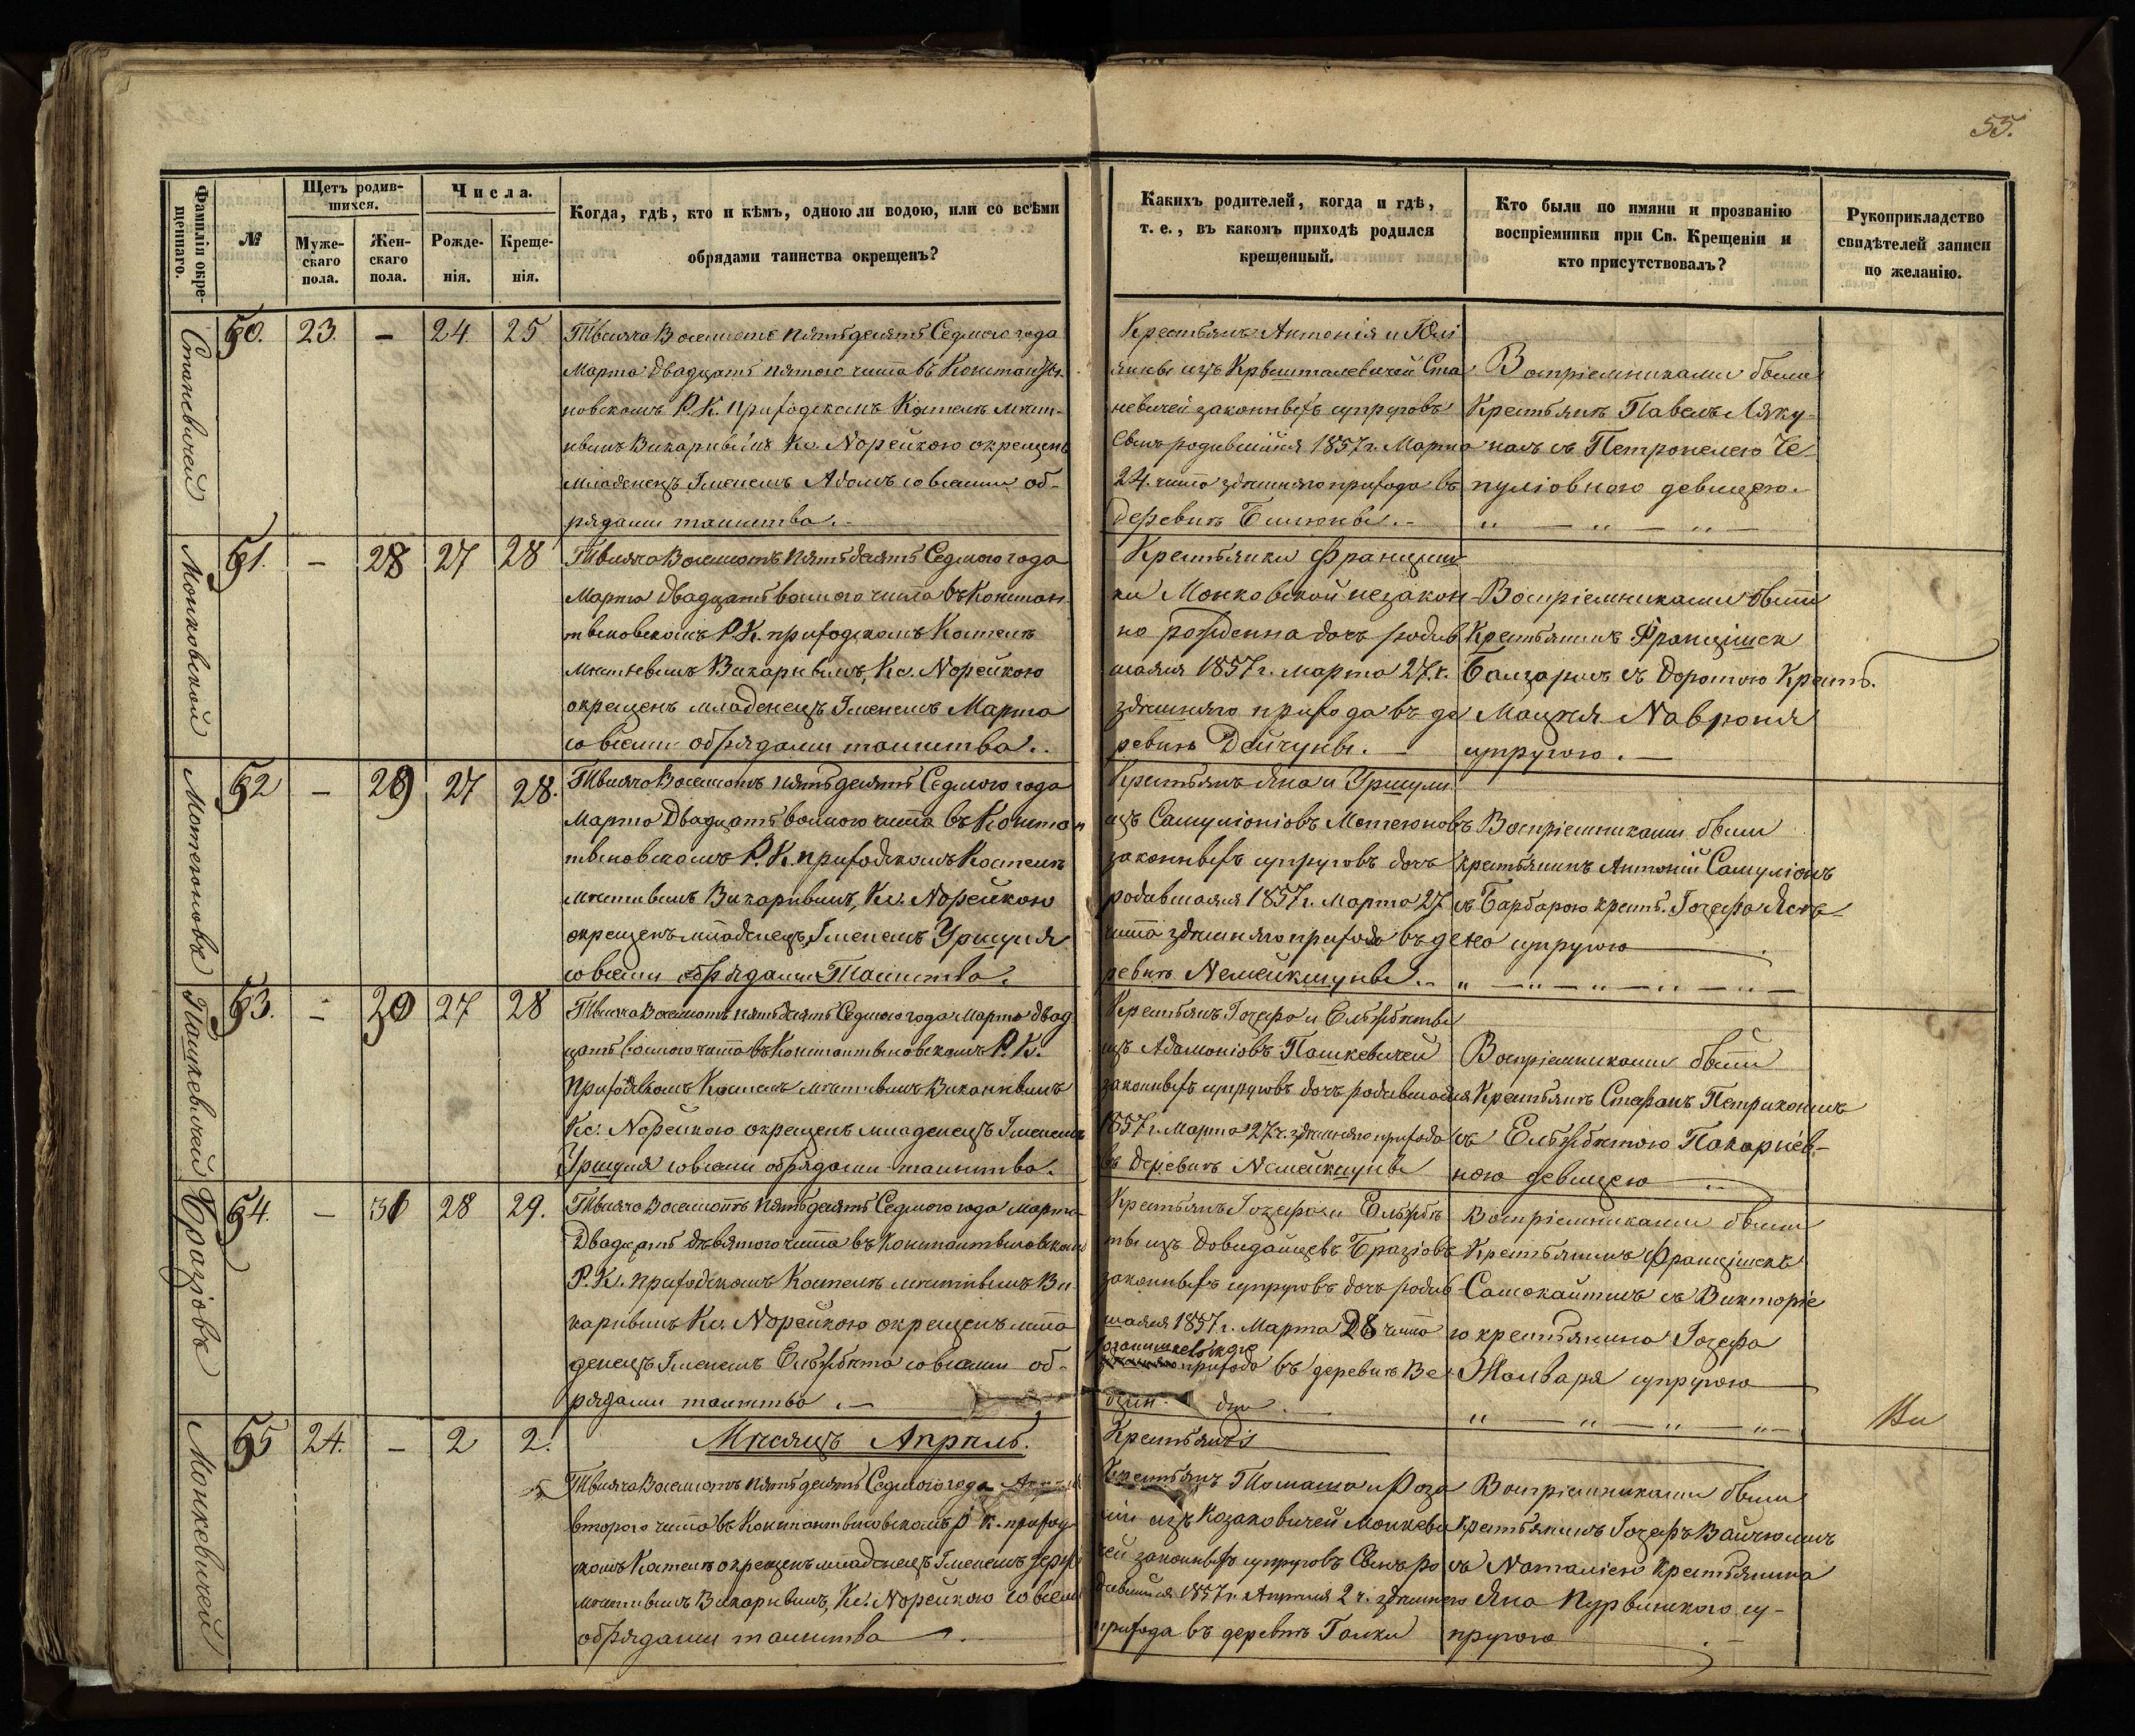 55.
Фамиліи окре-
щеннаго.
№
Щетъ родив-
шихся.
Муже-
скаго
пола.
Жен-
скаго
пола.
Числа.
Рожде-
нія.
Креще-
нія.
Когда, гдѣ, кто и кѣмъ, одною ли водою, или со всѣми
обрядами таинства окрещенъ?
Какихъ родителей, когда и гдѣ,
т. е., въ какомъ приходѣ родился
крещенный.
Кто были по имяни и прозванію
воспріемники при Св. Крещеніи и
кто присутствовалъ?
Рукоприкладство
свидѣтелей записи
по желанію.
Станевичей
50. 23. — 24. 25
Тысяча Восемсотъ пятьдесятъ Седмого года
Марта двадцать пятого числа въ Константы-
новскомъ Р. К. приходскомъ Костелѣ мѣст-
нымъ Викарнымъ Кс. Норейкою окрещенъ
младенецъ Именемъ Адамъ со всеми об-
рядами таинства. -
Крестьянъ Антонія и Юлі
янны изъ Станевичей законныхъ супруговъ
Сынъ родившійся 1857 г. Марта
24. числа здешняго прихода въ
деревнѣ
Воспріемниками были
Крестьянъ Павелъ Ляку-
налъ съ Петронелею Че
пуліовною девицею.
Монковской
51. — 28 27 28
Тысяча Восемсотъ пятьдесятъ Седмого года
Марта двадцать восмого числа въ Констан
тыновскомъ Р. К. приходскомъ Костелѣ
мѣстнымъ Викарнымъ, Кс. Норейкою
окрещенъ младенецъ Именемъ Марта
со всеми обрядами таинства..
Крестьянки Францишк
ки Монковской незакон
но рожденна дочъ родив
шаяся 1857 г. Марта 27. ч.
здешняго прихода въ де
ревнѣ Дейчуны. —
Воспріемниками были
Крестьянинъ Францішек
съ Доротою Крест.
Мацѣя
супругою. —
Мотеюновъ
52 — 29 27 28.
Тысяча Восемсотъ пятьдесятъ Седмого года
Марта Двадцать восмого числа въ Констан
тыновскомъ Р. К. приходскомъ Костелѣ
мѣстнымъ Викарнымъ, Кс. Норейкою
окрещенъ младенецъ, Именемъ Уршуля
со всеми обрядами Таинства.
Крестьянъ Яна и Уршули
изъ Самуліоніовъ Мотеюновъ
законныхъ супруговъ дочъ
родившаяся 1857 г. Марта 27
числа здешняго прихода въ де
ревнѣ Немейкшуны..
Воспріемниками были
крестьянинъ Антоній Самуліонъ
съ Барбарою крест. Іозефа
супругою
Пашкевичей
53. — 30 27 28
Тысяча Восемсотъ пятьдесятъ Седмого года Марта двад
цать восмого числа въ Константыновскомъ Р. К.
Приходскомъ Костелѣ мѣстнымъ Викарнымъ
Кс. Норейкою окрещенъ младенецъ Именемъ
Уршуля со всеми обрядами таинства.
Крестьянъ Іозефа и Ельжбеты
изъ Адамоніовъ Пашкевичей
законныхъ супруговъ дочъ родившаяся
1857 г. Марта 27 ч. здешняго прихода
въ деревнѣ Немейкшуны
Воспріемниками были
Крестьянъ Стефанъ Петрикониъ
съ Ельжбетою
ною девицею
Бразіовъ
54. — 31 28 29.
Тысяча Восемсотъ Пятьдесятъ Седмого года Марта
Двадцать девятого числа въ Константыновскомъ
Р. К. приходскомъ Костелѣ мѣстнымъ Ви
карнымъ Кс. Норейкою окрещенъ мла
денецъ Именемъ Ельжбета со всеми об-
рядами таинства . —
Крестьянъ Іозефа и Ельжбе
ты изъ Довидайцевъ Бразіовъ
законныхъ супруговъ дочъ родив
шаяся 1857 г. Марта 28 числа
прихода въ деревнѣ
Воспріемниками были
Крестьянинъ Францішекъ
Самокайтись съ Викторіе
ю крестьянина Іозефа
супругою
Монкевичей
55 24. — 2 2.
Мѣсяцъ Апрѣль.
Тысяча Восемсотъ пятьдесятъ Седмого года Апрѣля
второго числа въ Константыновскомъ Р. К. приход
скомъ Костелѣ окрещенъ младенецъ Именемъ
мѣстнымъ Викарнымъ, Кс. Норейкою со всеми
обрядами таинства
Крестьянъ
Крестьянъ Томаша и Роза
ліи изъ Козаковичей Монкеви
чей законныхъ супруговъ Сынъ ро
дившийся 1857 г. Апрѣля 2 ч. здешнего
прихода въ деревнѣ Галки
Воспріемниками были
Крестьянинъ Іозефъ
съ Наталіею Крестьянина
Яна су-
пругою